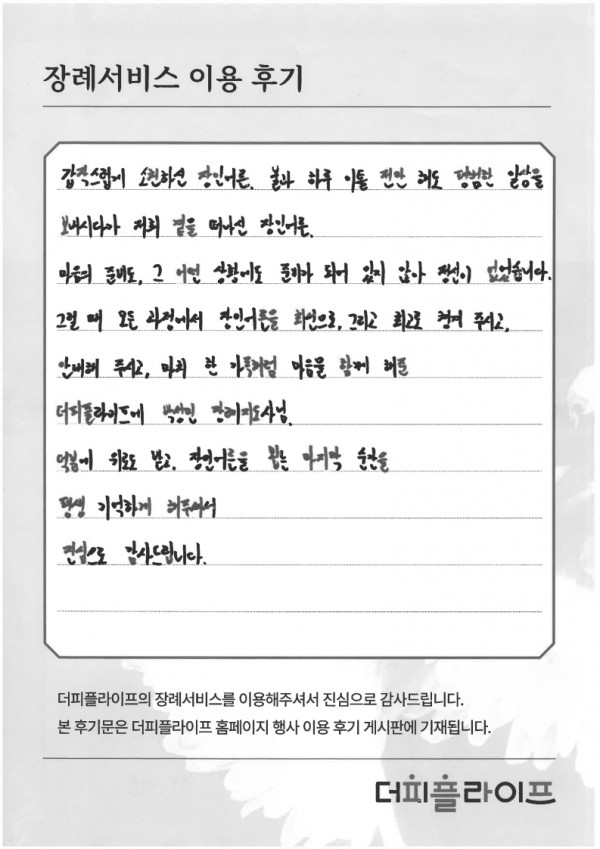 장례서비스 이용 후기
갑작스럽게 소천하신 장인어른. 불과 하루 이틀 전만 해도 평범한 일상을
보내시다가 저희 곁을 떠나신 장인어른.
마음의 준비도, 그 어떤 상황에도 준비가 되어 있지 않아 정신이 없었습니다.
그럴 때 모든 과정에서 장인어른을 최선으로, 그리고 최고로 챙겨 주시고,
안내해 주시고, 마치 한 가족처럼 마음을 함께 해준
더피플라이프에 박상민 장례지도사님.
덕분에 위로도 받고, 장인어른을 뵙는 마지막 순간을
평생 기억하게 해주셔서
진심으로 감사드립니다.
더피플라이프의 장례서비스를 이용해주셔서 진심으로 감사드립니다.
본 후기문은 더피플라이프 홈페이지 행사 이용 후기 게시판에 기재됩니다.
더피플라이프